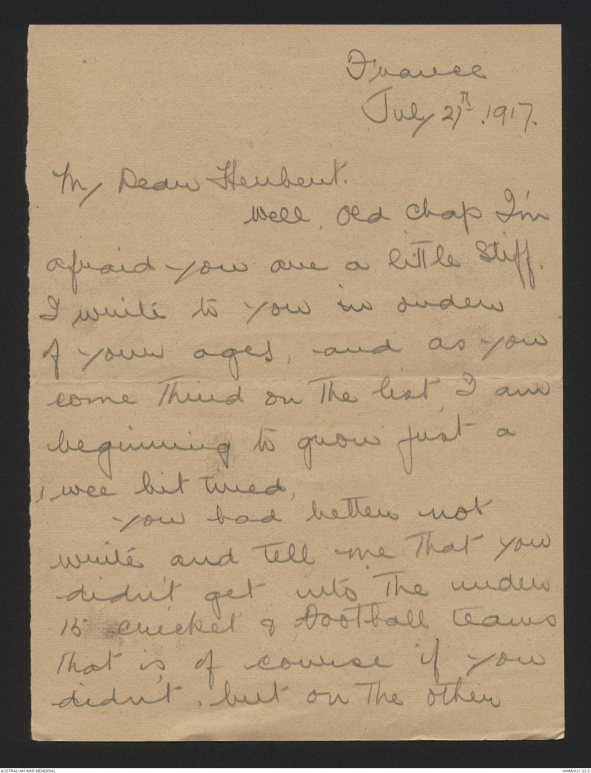 France
July 27th 1917.
My Dear Herbert.
Well, Old chap I'm
afraid you are a little stiff.
I write to you in order
of your ages, and as you
come third on the list, I am
beginning to grow just a
wee bit tired,
You had better not
write and tell me that you
didn't get into the under
15 cricket & football teams
that is of course if you
didn't, but on the other
AUSTRALIAN WAR MEMORIAL